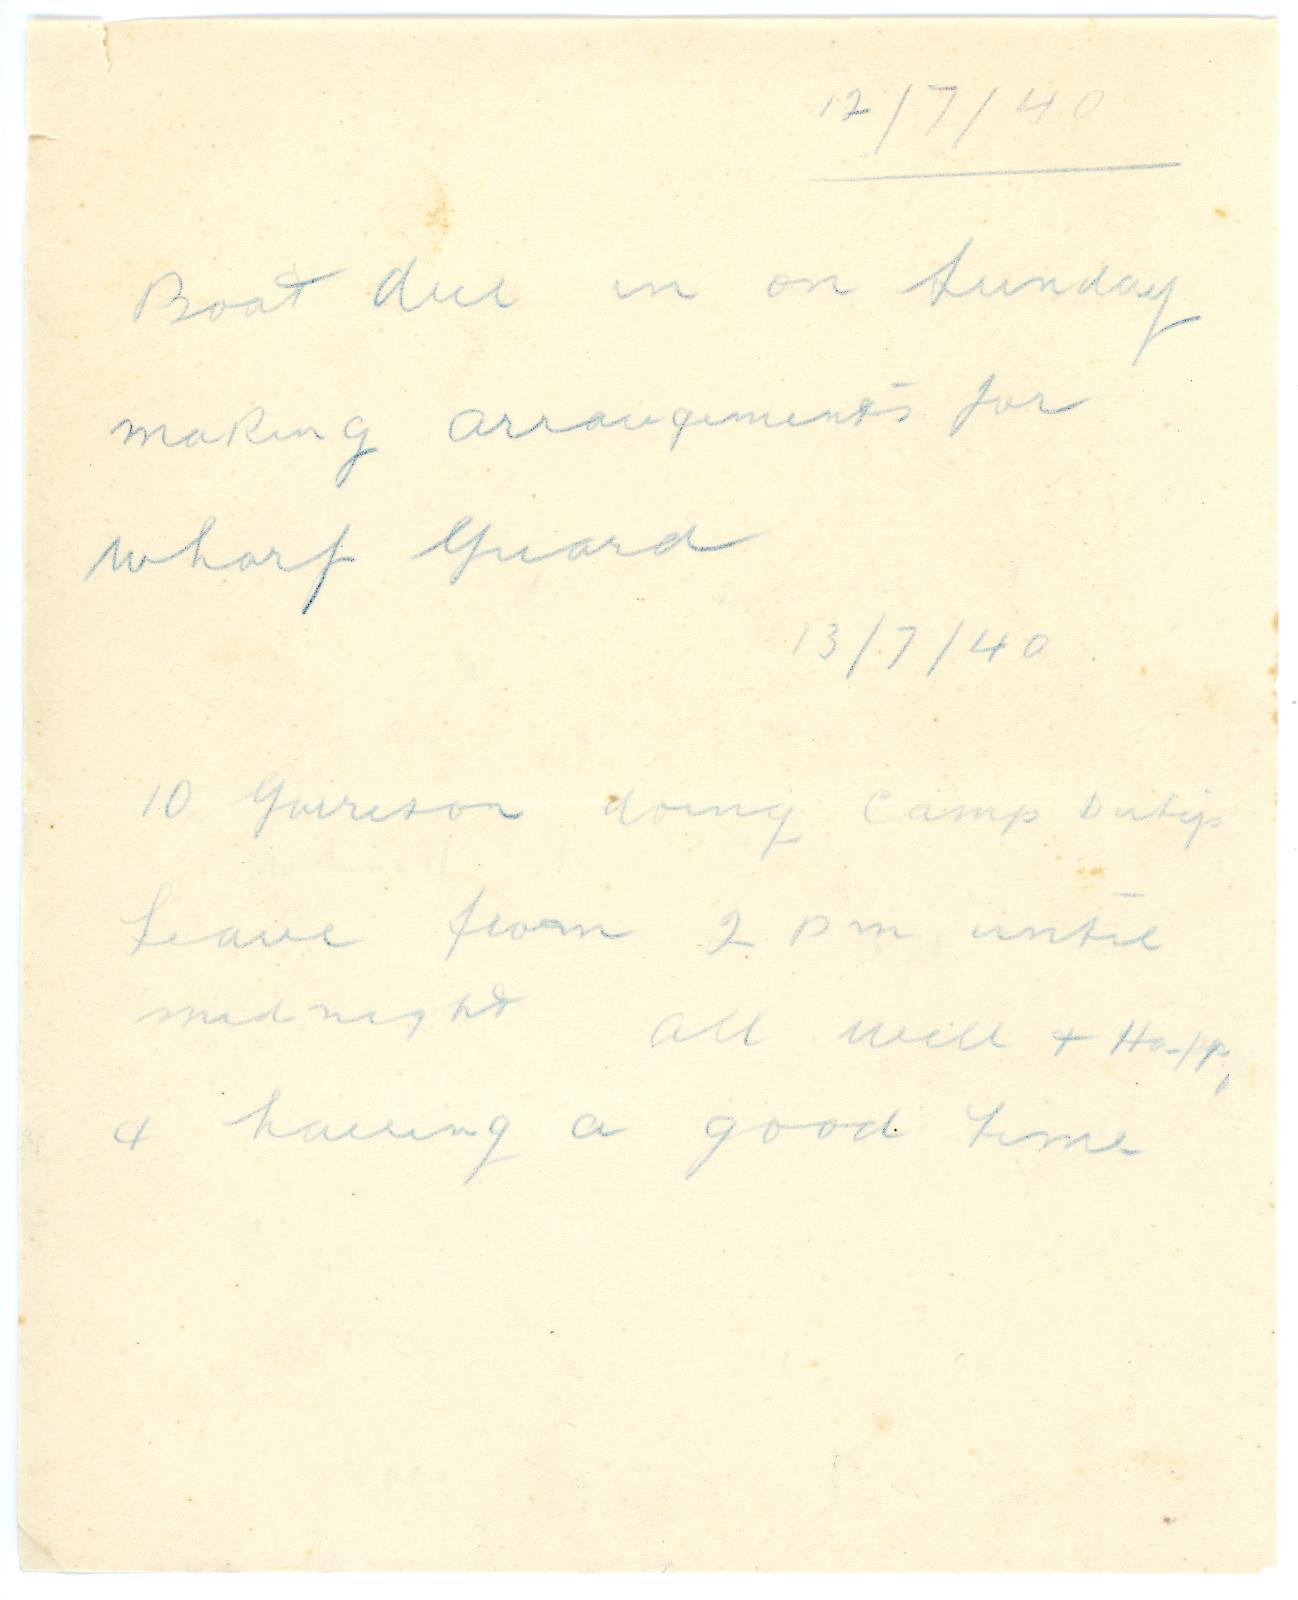 12/7/40
Boat due in on Sunday
making arrangements for
Wharf Guard
13/7/40
10 Garrison doing Camp Dutys
Leave from 2 pm until
midnight all well & Happy
& having a good time